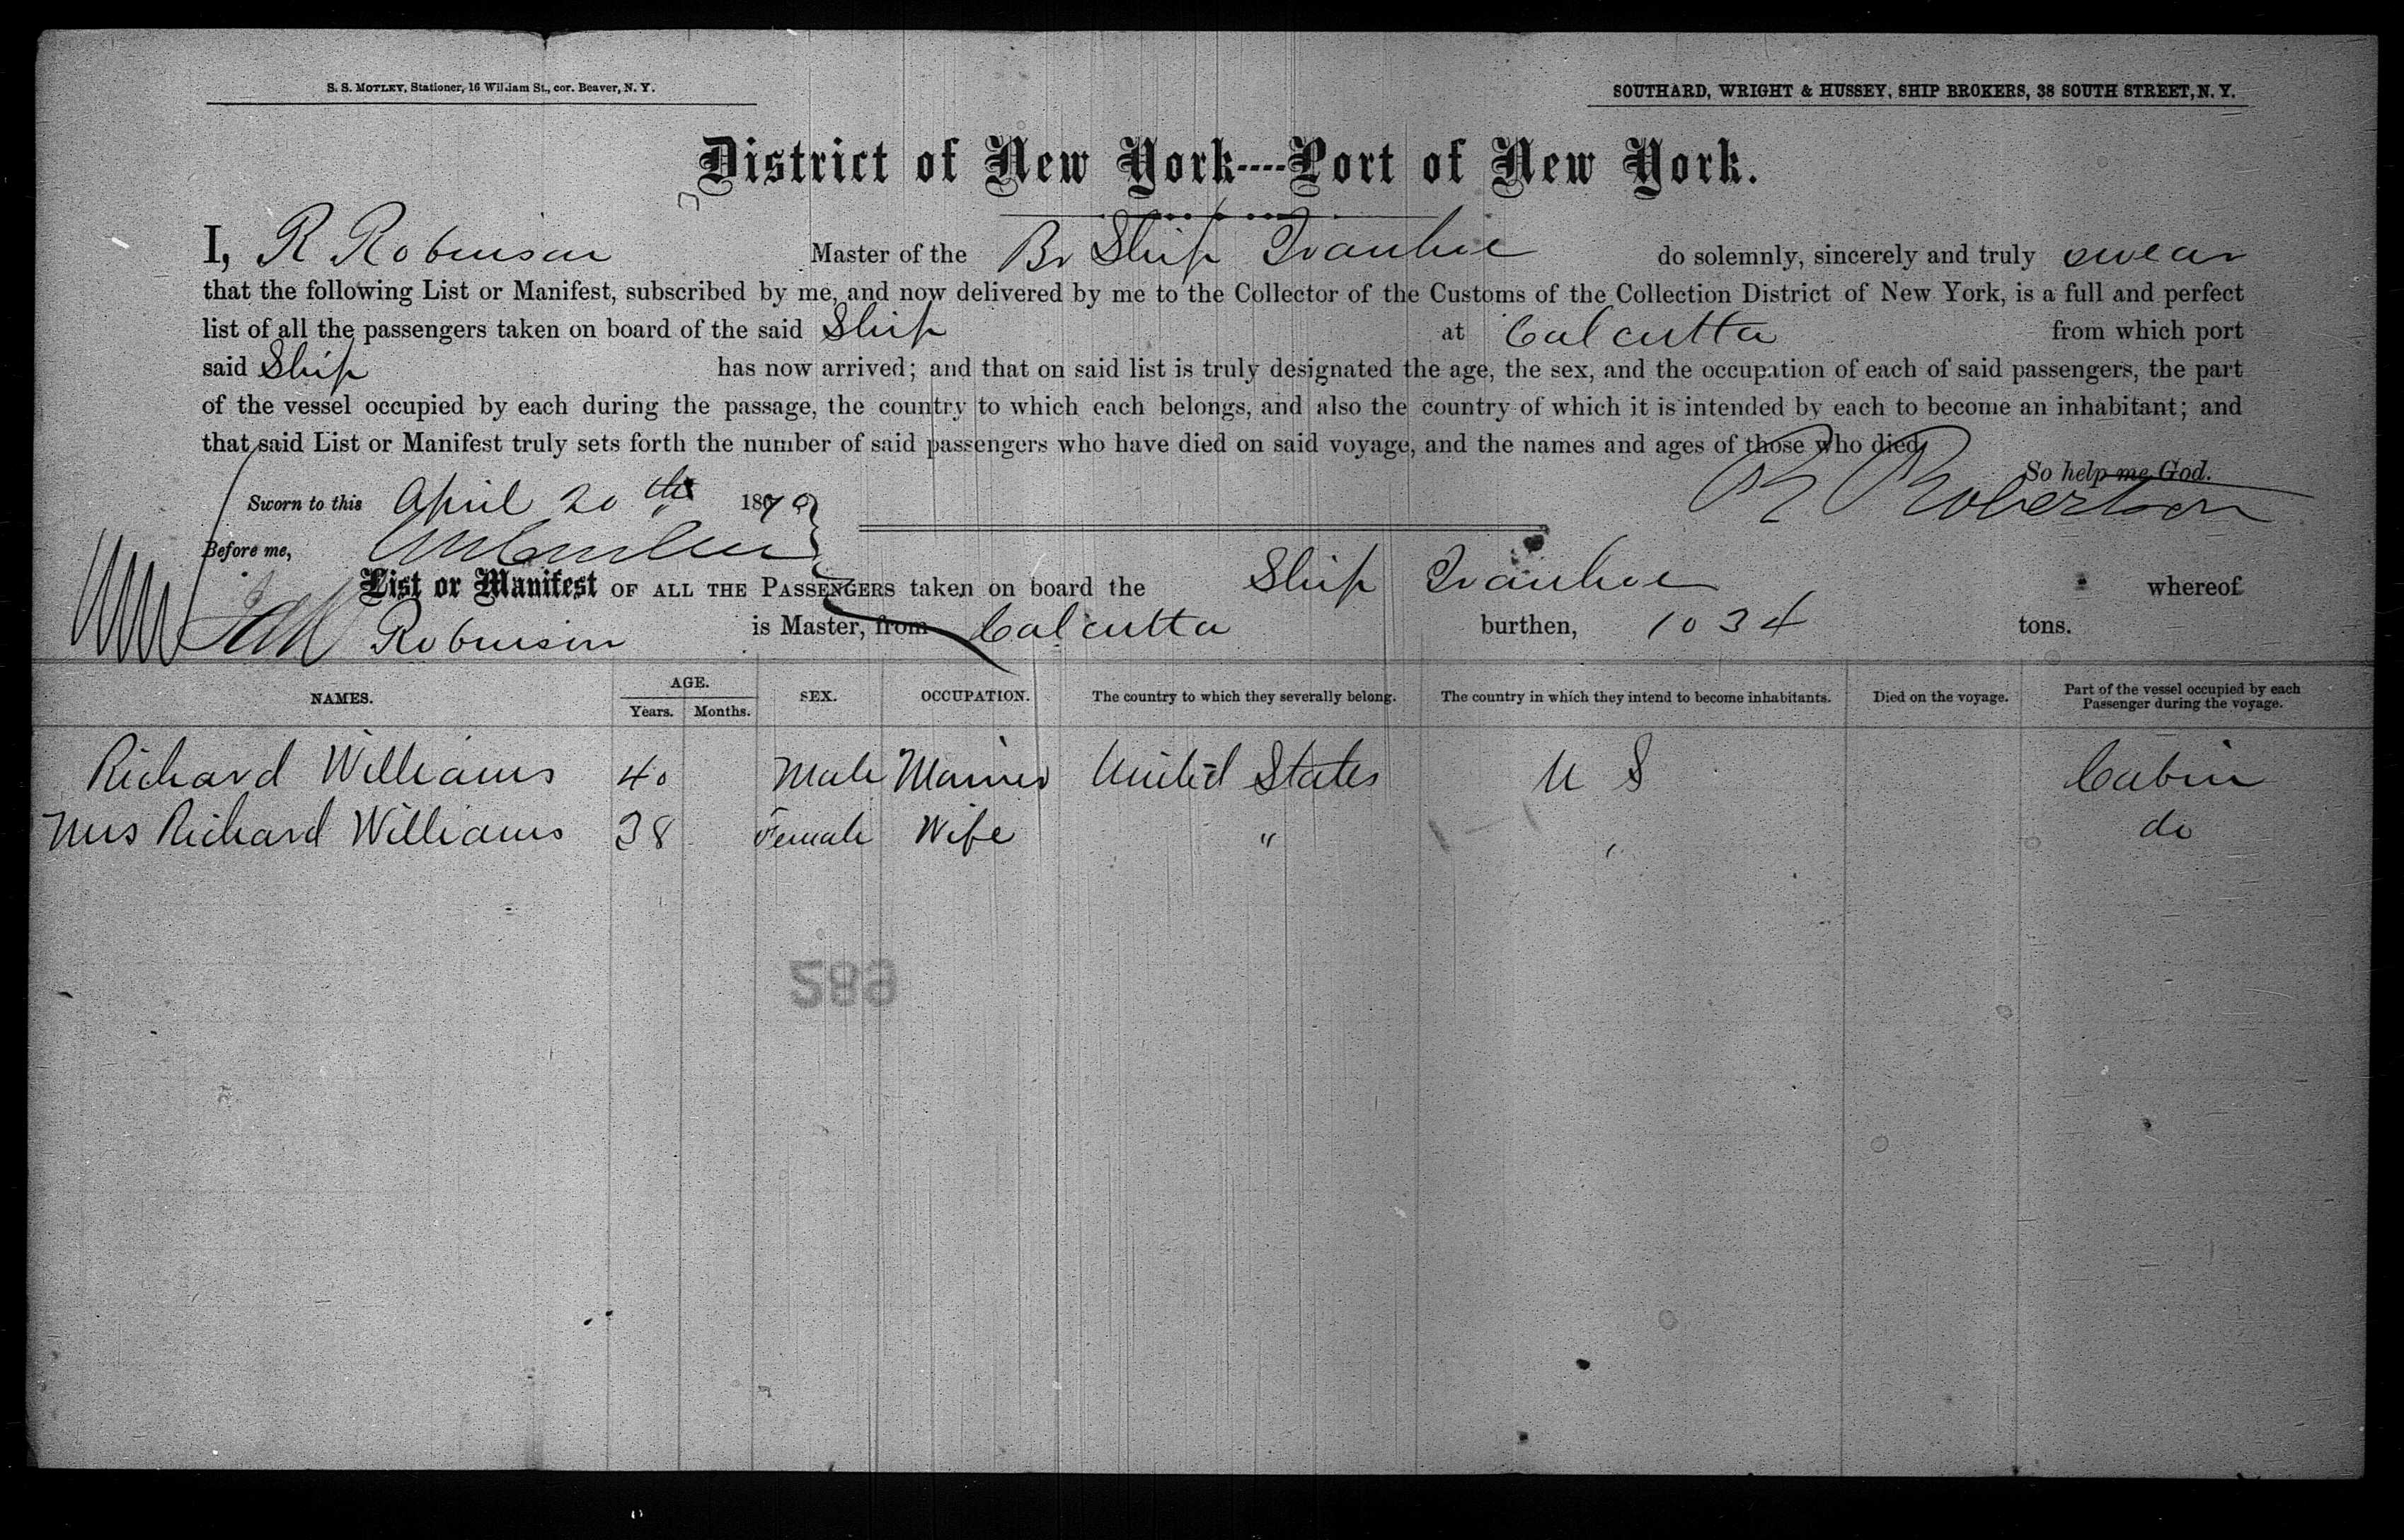 S. S. MOTLEY, Stationer, 16 William St., cor. Beaver, N. Y.
SOUTHARD, WRIGHT & HUSSEY, SHIP BROKERS, 38 SOUTH STREET, N. Y.
District of New York----Port of New York.
I, R Robinson Master of the Br Ship Ivanhoe do solemnly, sincerely and truly swear
that the following List or Manifest, subscribed by me, and now delivered by me to the Collector of the Customs of the Collection District of New York, is a full and perfect
list of all the passengers taken on board of the said Ship at Calcutta from which port
said Ship has now arrived; and that on said list is truly designated the age, the sex, and the occupation of each of said passengers, the part
of the vessel occupied by each during the passage, the country to which each belongs, and also the country of which it is intended by each to become an inhabitant; and
that said List or Manifest truly sets forth the number of said passengers who have died on said voyage, and the names and ages of those who died.
So help me God.
Sworn to this April 20th 1870 R Robertson
Before me,
List or Manifest OF ALL THE PASSENGERS taken on board the Ship Ivanhoe whereof
Robinson is Master, from Calcutta burthen, 1034 tons.
NAMES. AGE. Years. Months. SEX. OCCUPATION. The country to which they severally belong. The country in which they intend to become inhabitants. Died on the voyage. Part of the vessel occupied by each Passenger during the voyage.
Richard Williams 40 Male Mariner United States U S Cabin
Mrs Richard Williams 38 Female Wife " " do